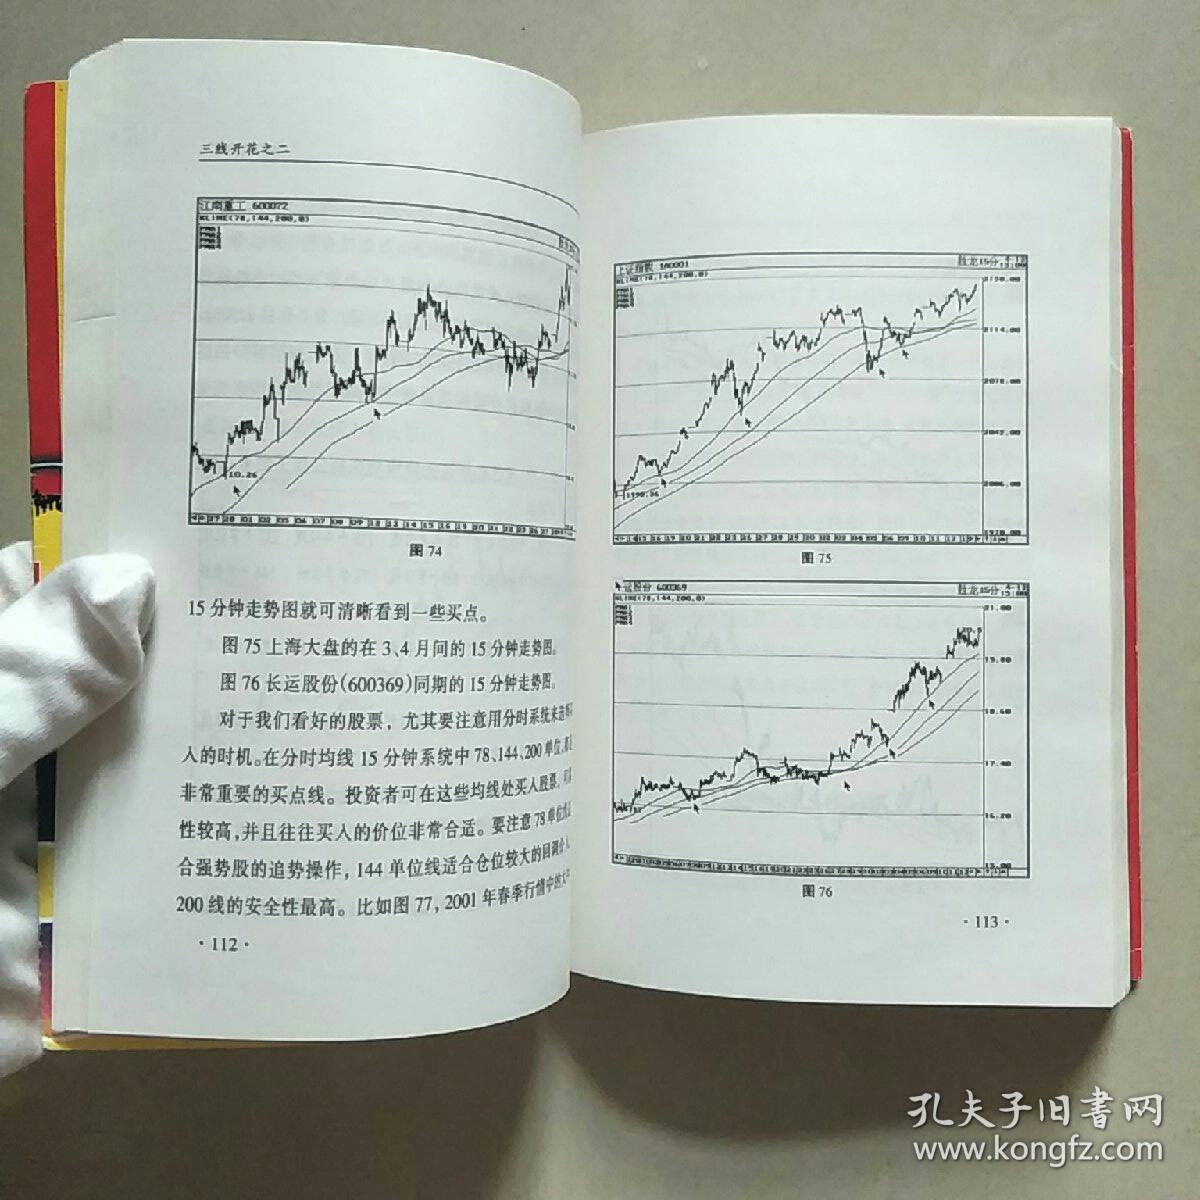 三线开花之二
江南重工 600072
KLINE(78,144,200,0)
10.26
图 74
15 分钟走势图就可清晰看到一些买点。
图 75 上海大盘的在 3、4 月间的 15 分钟走势图。
图 76 长运股份(600369)同期的 15 分钟走势图。
对于我们看好的股票，尤其要注意用分时系统来选择
人的时机。在分时均线 15 分钟系统中 78、144、200 单位,都是
非常重要的买点线。投资者可在这些均线处买人股票,
性较高,并且往往买人的价位非常合适。要注意 78 单位线适
合强势股的追势操作，144 单位线适合仓位较大的回调介人
200 线的安全性最高。比如图 77，2001 年春季行情中的
· 112 ·
上证指数 1A0001
胜龙15分
KLINE(78,144,200,0)
2114.00
2078.00
2042.00
2006.00
1970.00
1990.06
图 75
证股份 600369
胜龙15分
KLINE(78,144,200,0)
21.00
19.80
18.60
17.40
16.20
15.00
图 76
· 113 ·
孔夫子旧書网
www.kongfz.com